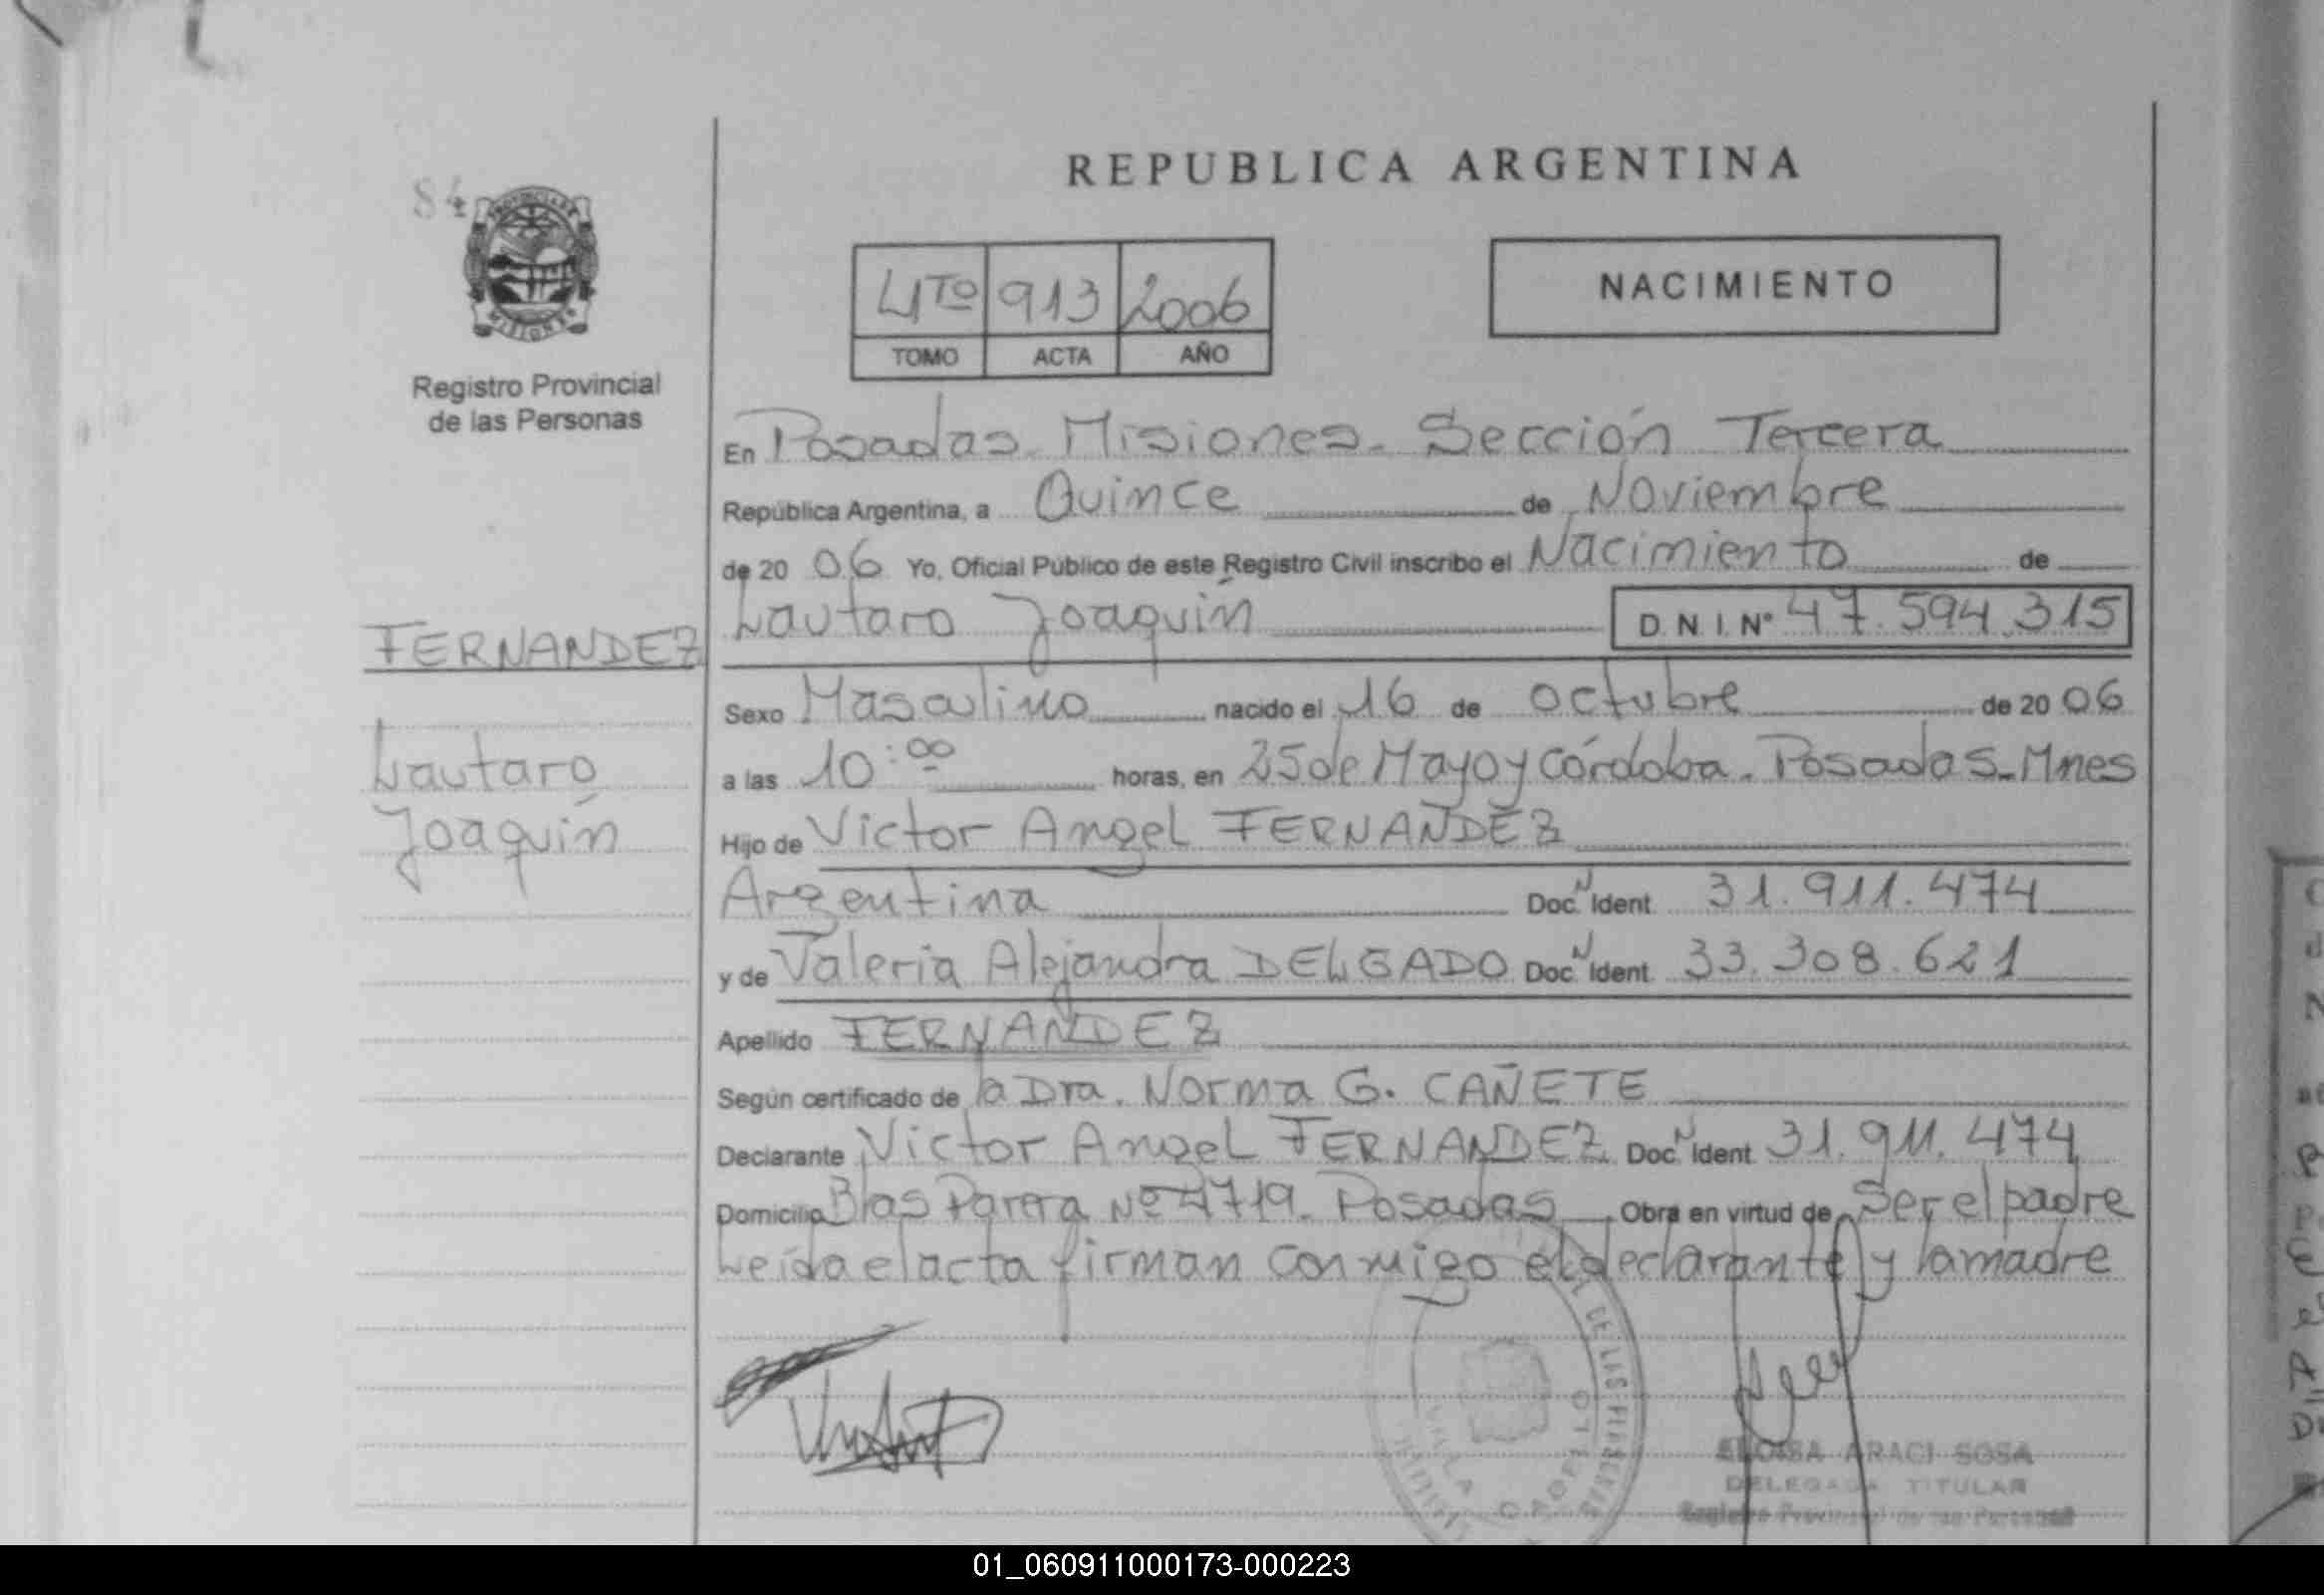 REPUBLICA ARGENTINA
84
4to 913 2006
TOMO ACTA AÑO
NACIMIENTO
MISIONES
Registro Provincial
de las Personas
En Posadas. Misiones. Sección Tercera
República Argentina, a Quince de Noviembre
de 20 06 Yo, Oficial Público de este Registro Civil inscribo el Nacimiento de
Lautaro Joaquín D.N.I. Nº 47.594.315
FERNANDEZ
Lautaro
Joaquín
Sexo Masculino nacido el 16 de octubre de 20 06
a las 10:00 horas, en 25 de Mayo y Córdoba. Posadas-Mnes
Hijo de Victor Angel FERNANDEZ
Argentina Doc. N Ident 31.911.474
y de Valeria Alejandra DELGADO Doc. N Ident. 33.308.621
Apellido FERNANDEZ
Según certificado de la Dra. Norma G. CAÑETE
Declarante Victor Angel FERNANDEZ Doc. N Ident 31.911.474
Domicilio Blas Parera Nº 4719. Posadas Obra en virtud de Ser el padre
Leída el acta firman conmigo el declarante y la madre
DE LAS PERSONAS
VILLA
ELOISA ARACI SOSA
DELEGADA TITULAR
Registro Provincial de las Personas
01_060911000173-000223